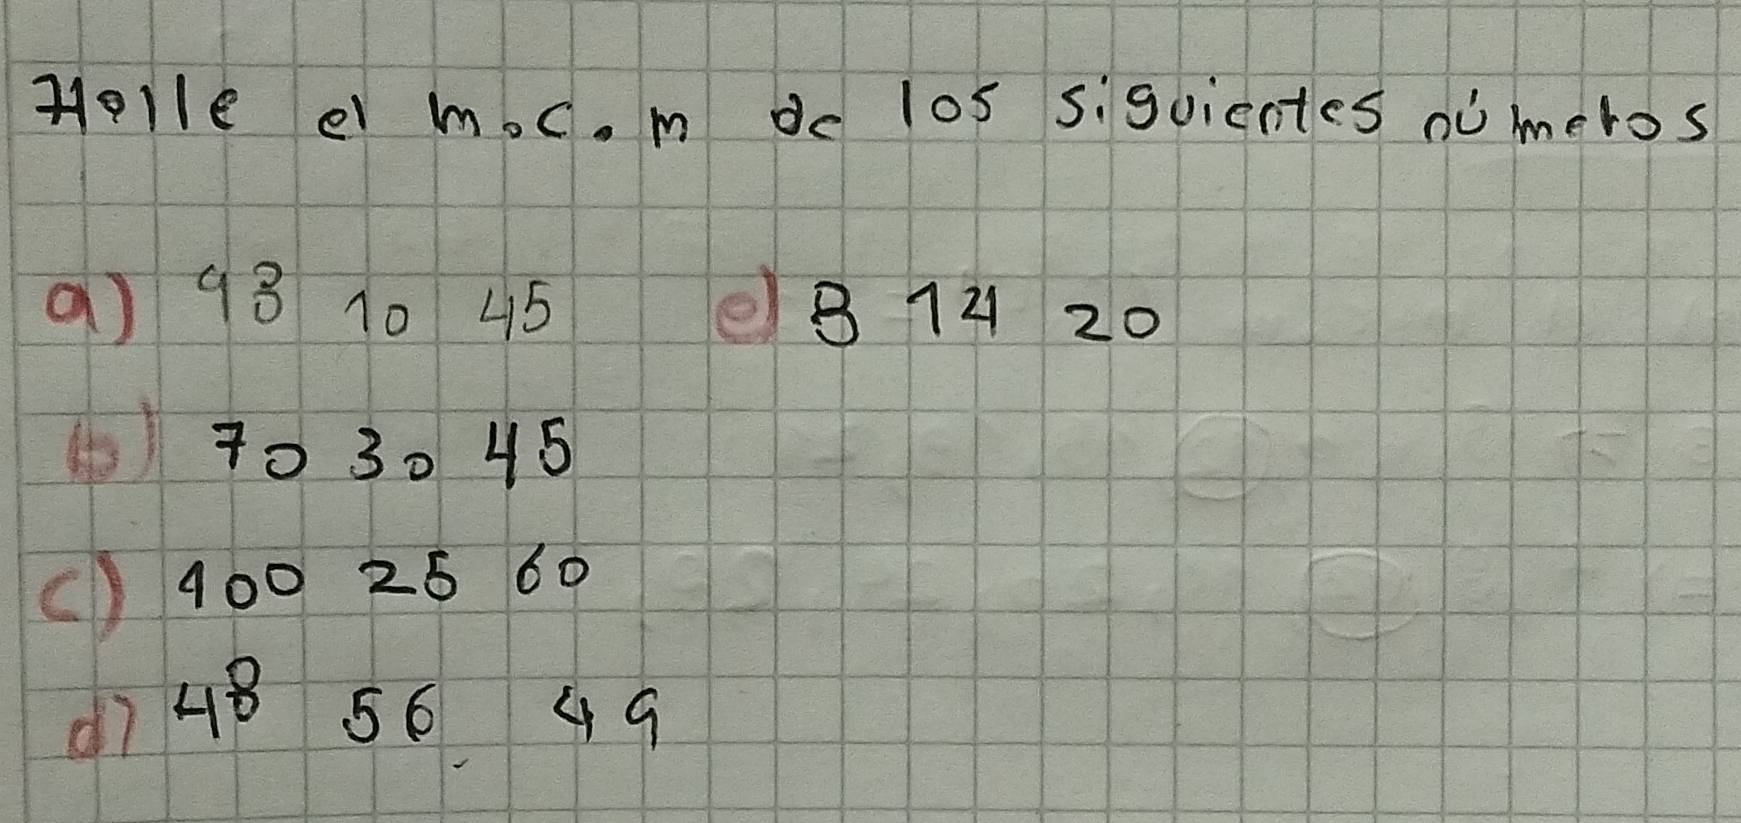 Halle el m.c.m de los siguientes números
a) 98 10 45 e) 8 14 20
b) 70 30 45
c) 100 25 60
d) 48 56 49